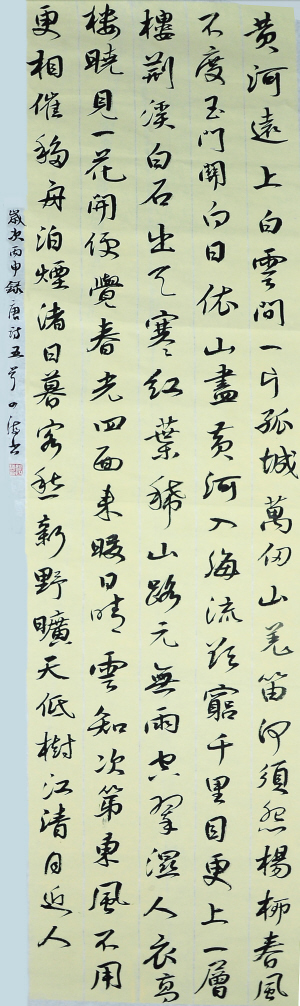 黄河遠上白雲間一片孤城萬仞山羌笛何須怨楊柳春風
不度玉門關白日依山盡黄河入海流欲窮千里目更上一層
樓荆溪白石出天寒紅葉稀山路元無雨空翠濕人衣高
樓曉見一花開便覺春光四面来暖日晴雲知次第東風不用
更相催移舟泊煙渚日暮客愁新野曠天低樹江清月近人
歲次丙申録唐詩五首